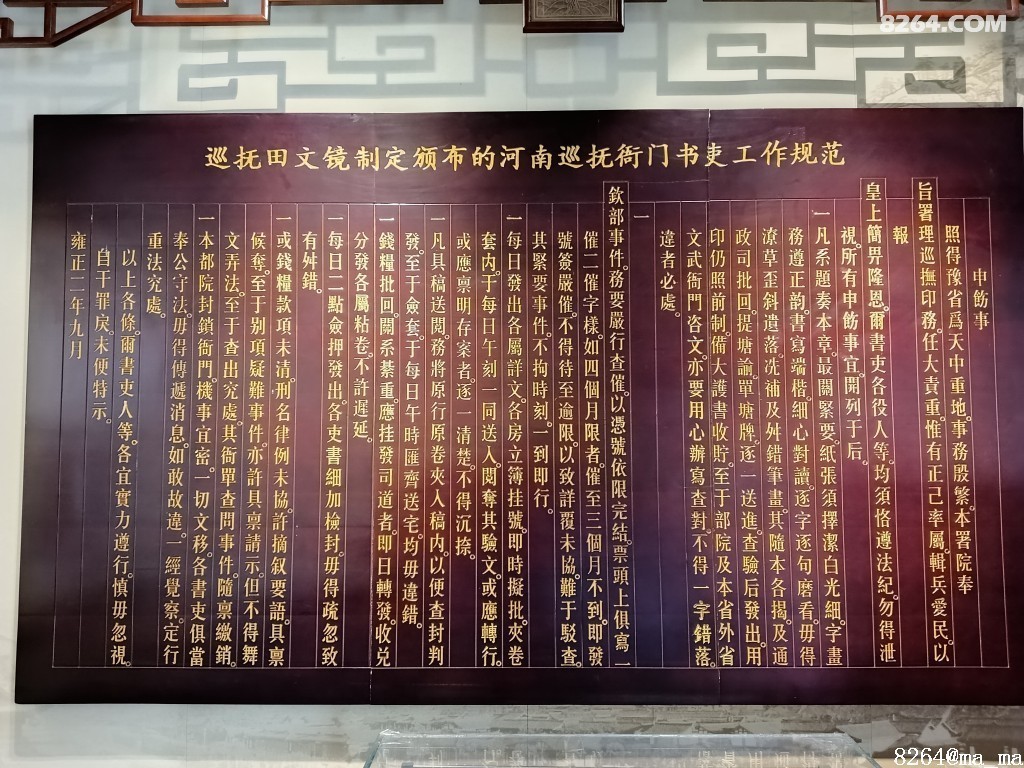 8264.COM
巡抚田文镜制定颁布的河南巡抚衙门书吏工作规范
申飭事
照得豫省爲天中重地。事務殷繁。本署院奉
旨署理巡撫印務。任大責重。惟有正己率屬。輯兵愛民。以
報
皇上簡畀隆恩。爾書吏各役人等。均須恪遵法紀。勿得泄
視。所有申飭事宜。開列于后。
一凡系題奏本章。最關緊要。紙張須擇潔白光細。字畫
務遵正韵。書寫端楷。細心對讀。逐字逐句磨看。毋得
潦草歪斜。遺落。洗補及舛錯筆畫。其隨本各揭。及通
政司批回。提塘諭單塘牌。逐一送進。查驗后發出。用
印仍照前制。備大護書收貯。至于部院及本省外省
文武衙門咨文。亦要用心辦寫查對。不得一字錯落。
違者必處。
一
欽部事件。務要嚴行查催。以憑號依限完結。票頭上俱寫一
催二催字樣。如四個月限者。催至三個月不到。即發
號簽嚴催。不得待至逾限。以致詳覆未協。難于駁查。
其緊要事件。不拘時刻。一到即行。
一每日發出各屬詳文。各房立簿挂號。即時擬批。夾卷
套内。于每日午刻一同送入閱奪。其驗文。或應轉行。
或應禀明存案者。逐一清楚。不得沉捺。
一凡具稿送閱。務將原行原卷夾入稿内。以便查封判
發。至于僉套。于每日午時匯齊送宅。均毋違錯。
一錢糧批回。關系綦重。應挂發司道者。即日轉發。收兑
分發各屬粘卷。不許遲延。
一每日二點僉押發出。各吏書細加檢封。毋得疏忽致
有舛錯。
一或錢糧款項未清。刑名律例未協。許摘叙要語。具禀
候奪。至于别項疑難事件。亦許具禀請示。但不得舞
文弄法。至于查出究處。其衙單查問事件。隨禀繳銷。
一本都院封鎖衙門。機事宜密。一切文移。各書吏俱當
奉公守法。毋得傳遞消息。如敢故違。一經覺察。定行
重法究處。
以上各條。爾書吏人等。各宜實力遵行。慎毋忽視。
自干罪戾。未便特示。
雍正二年九月
8264@ma_ma